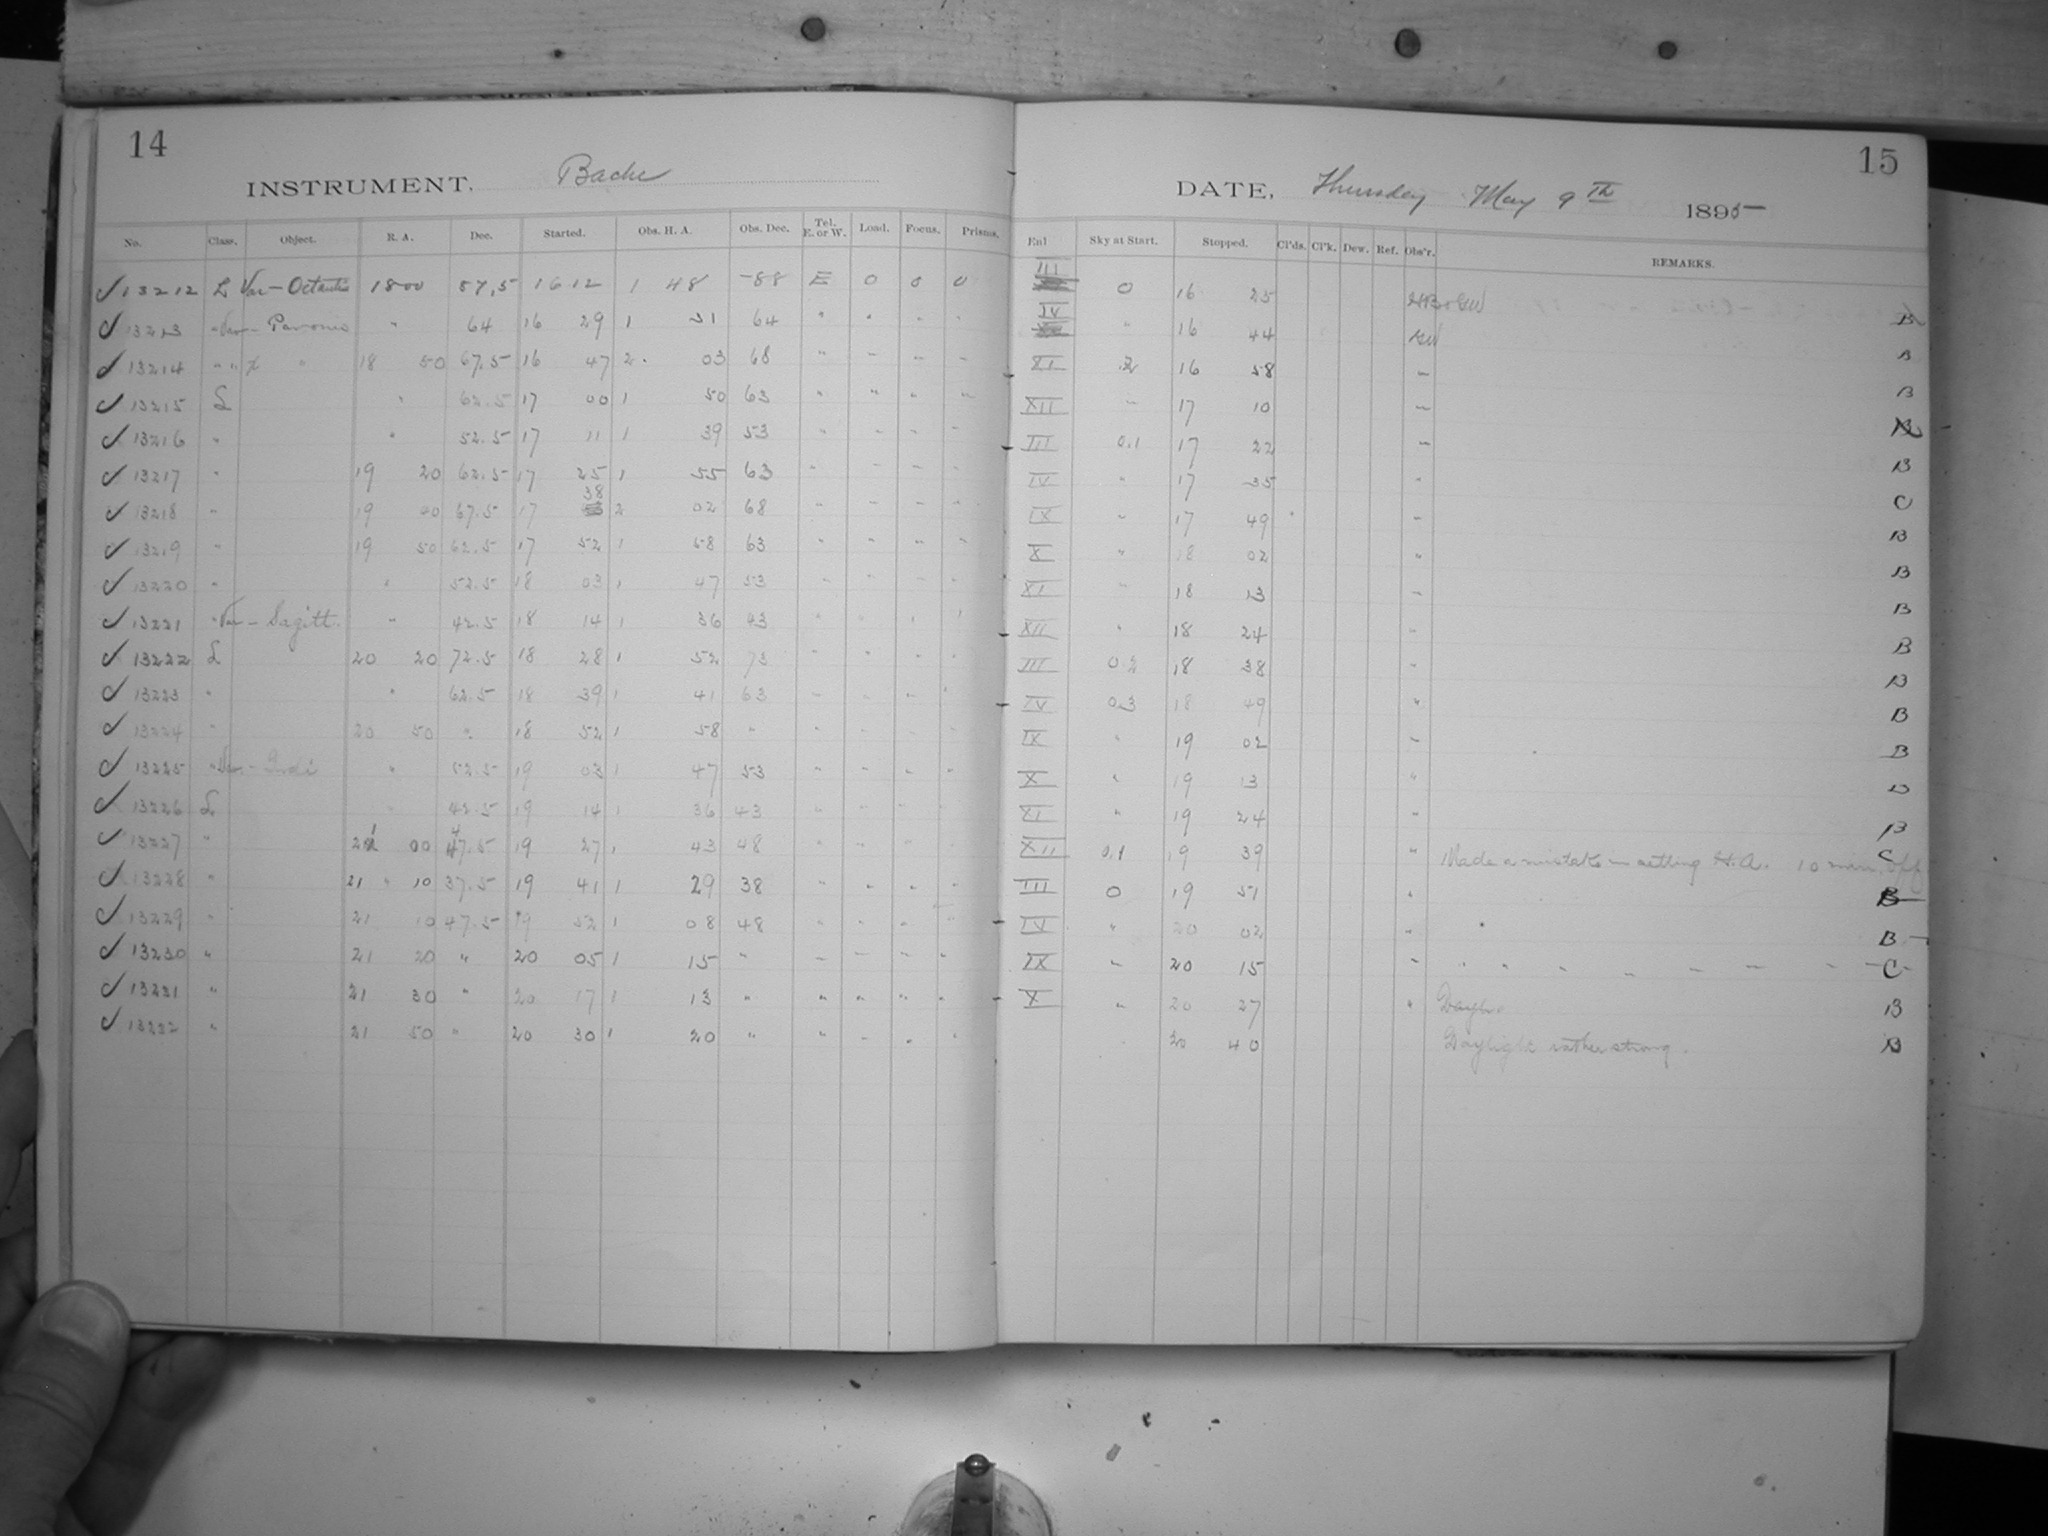 14
INSTRUMENT, Bache
No. Class. Object. R. A. Dec. Started. Obs. H. A. Obs. Dec. Tel. E. or W. Load. Focus. Prisms.
✓ 13212 L Var - Octantis 18 00 87,5 16 12 1 48 -88 E 0 0 0
✓ 13213 " Var - Pavonis " 64 16 29 1 31 64 " " " "
✓ 13214 " " X " 18 50 67.5 16 47 2 03 68 " " " "
✓ 13215 L " 62.5 17 00 1 50 63 " " " "
✓ 13216 " " 52.5 17 11 1 39 53 " " " "
✓ 13217 " 19 20 62.5 17 25 1 55 63 " " " "
✓ 13218 " 19 67.5 17 38 2 02 68 " " " "
✓ 13219 " 19 50 62.5 17 52 1 58 63 " " " "
✓ 13220 " " 52.5 18 03 1 47 53 " " " "
✓ 13221 " Var - Sagitt. " 42.5 18 14 1 36 43 " " " "
✓ 13222 L 20 20 72.5 18 28 1 52 73 " " " "
✓ 13223 " " 62.5 18 39 1 41 63 " " " "
✓ 13224 " 20 50 " 18 52 1 58 " " " " "
✓ 13225 " Var - Indi " 52.5 19 03 1 47 53 " " " "
✓ 13226 L " 42.5 19 14 1 36 43 " " " "
✓ 13227 " 21 00 47.5 19 27 1 43 48
✓ 13228 " 21 10 37.5 19 41 1 29 38 " " " "
✓ 13229 " 21 10 47.5 19 52 1 08 48 " " " "
✓ 13230 " 21 20 " 20 05 1 15 " " " " "
✓ 13231 " 21 30 " 20 17 1 13 " " " " "
✓ 13232 " 21 50 " 20 30 1 20 " " " " "
15
DATE, Thursday May 9th 1895
Sky at Start. Stopped. Cl'ds. Cl'k. Dew. Ref. Obs'r. REMARKS.
III 0 16 25 B
IV " 16 44 B
XI .2 16 58 " B
XII " 17 10 "
III 0.1 17 22 " B
IV " 17 35 " C
IX " 17 49 " B
X " 18 02 " B
XI " 18 13 " B
XII " 18 24 " B
III 0.2 18 38 " B
IV 0.3 18 49 " B
IX " 19 02 " B
X " 19 13 "
XI " 19 24 " B
XII 0.1 19 39 " Made a mistake in setting H.A. 10 min. off C
III 0 19 51 " B
IV " 20 02 " B
IX " 20 15 " " " " " " " " C
X " 20 27 " B
20 40 Daylight rather strong. B